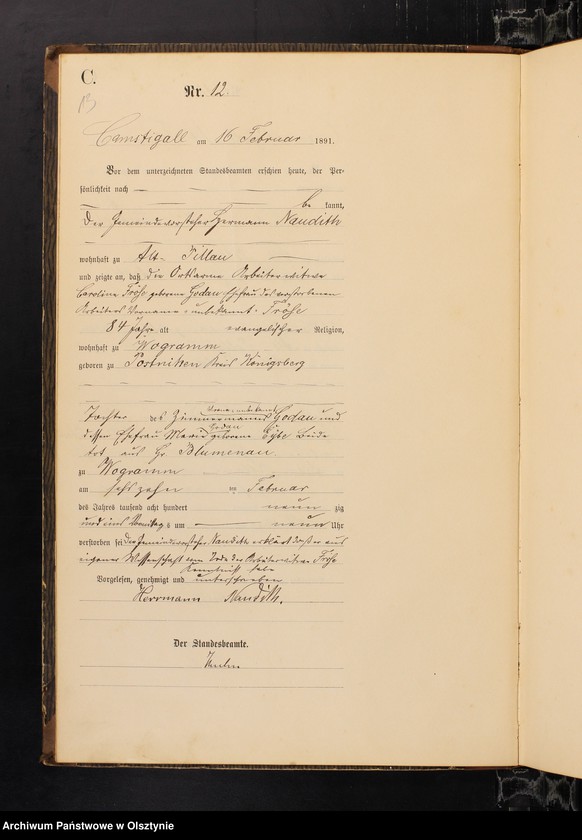 C.
Nr. 12.
Camstigall am 16 Februar 1891.
Vor dem unterzeichneten Standesbeamten erschien heute, der Per-
sönlichkeit nach
be kannt,
Der Gemeindevorsteher Hermann Naudith
wohnhaft zu Alt- Pillau
und zeigte an, daß die Ortsarme Arbeiterwitwe
Caroline Fröse geborene Godau Ehefrau des verstorbenen
Arbeiters Vorname unbekannt Fröse
84 Jahre alt evangelischer Religion,
wohnhaft zu Wogramm
geboren zu Postniken Kreis Königsberg
Tochter des Zimmermanns Godau und
dessen Ehefrau Marie geborene beide
tot aus Gr Blumenau
zu Wogramm
am sechszehn ten Februar
des Jahres tausend acht hundert neun zig
und eins Vormittags um neun Uhr
verstorben sei Der Gemeindevorsteher Naudith erklärt daß er aus
eigener Wissenschaft vom Tode der Arbeiterwitwe Fröse
Kenntniß habe
Vorgelesen, genehmigt und unterschrieben
Herrmann Naudith.
Der Standesbeamte.
Archiwum Państwowe w Olsztynie